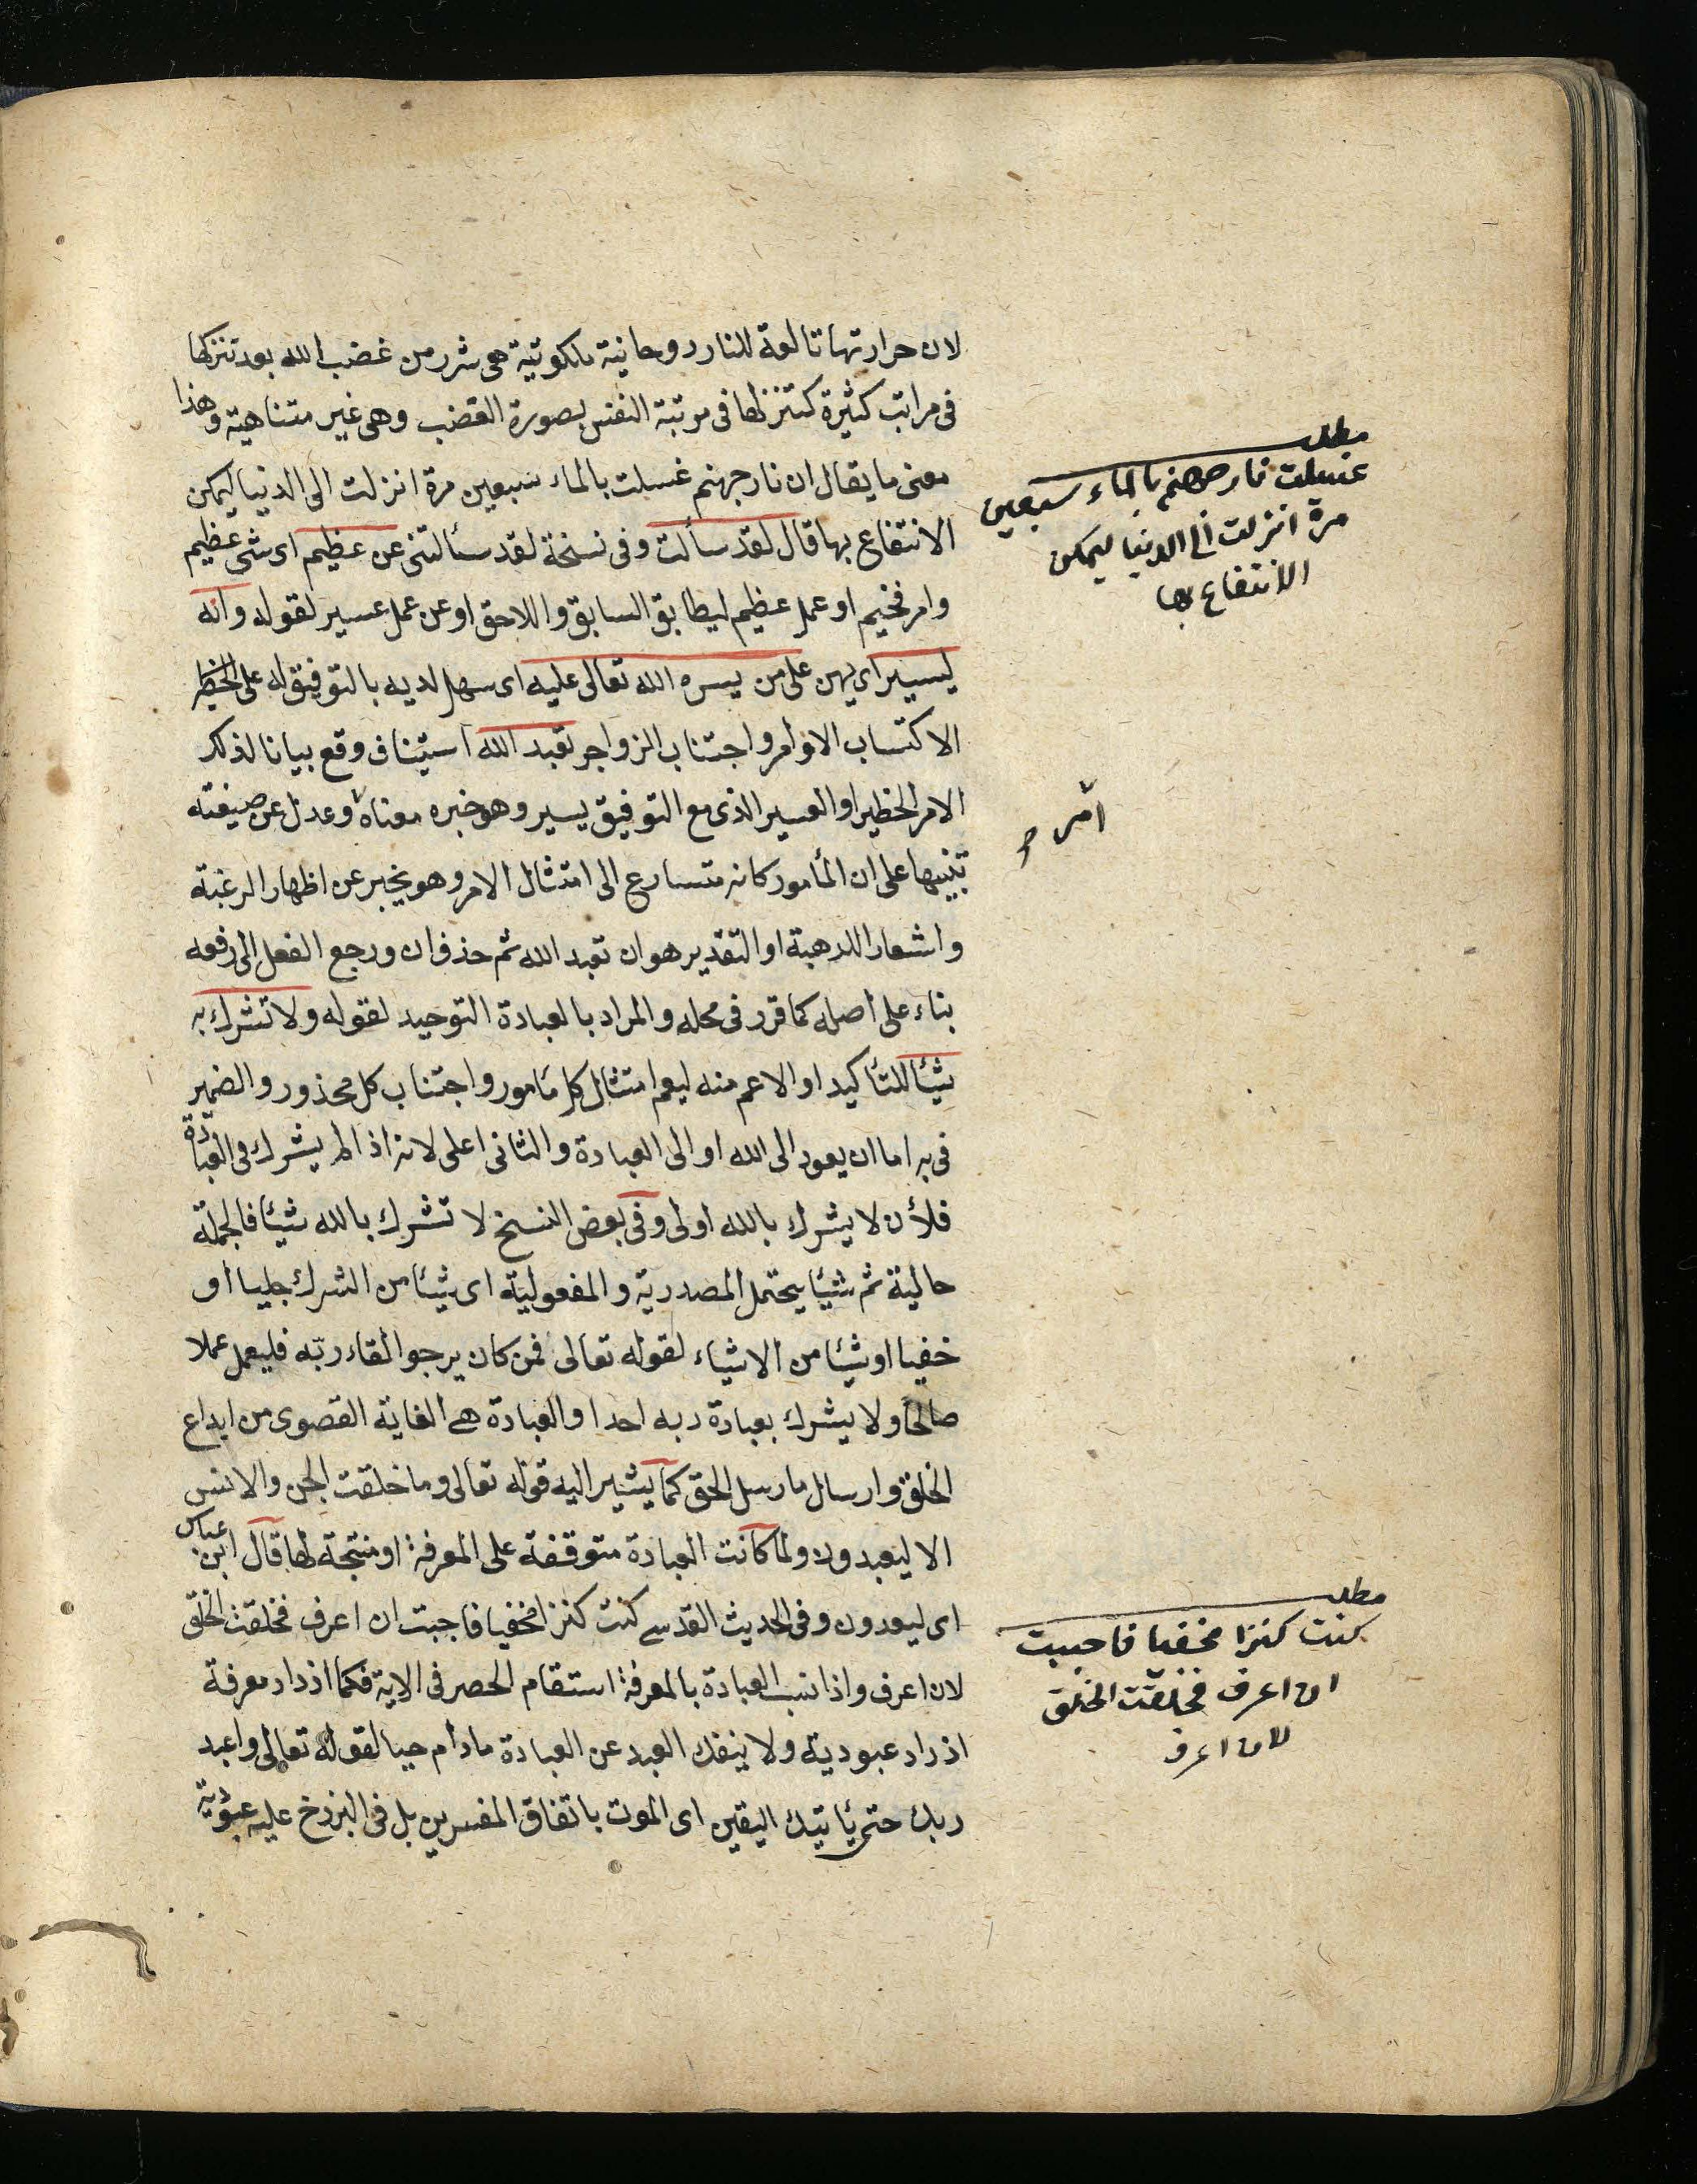 لان حرارتها تابعة للنار روحانية ملكوتية هى شرر من غضب الله بعد تنزلها
فى مراتب كثيرة كتنزلها فى مرتبة النفس بصورة الغضب وهى غير متناهية وهذا
معنى ما يقال ان نار جهنم غسلت بالماء سبعين مرة انزلت الى الدنيا ليمكن
الانتفاع بها قال لقد سألت وفى نسخة لقد سئالتنى عن عظيم اى شى عظيم
وامر فخيم او عمل عظيم ليطابق السابق واللاحق او عن عمل عسير لقوله وانه
ليسير اى يهين على من يسره الله تعالى عليه اى سهل لديه بالتوفيق له على الخطر
الاكتساب الاوامر واجتناب الزواجر تعبد الله استيناف وقع بيانا لذلك
الامر الخطير او العسير الذى مع التوفيق يسير وهو خبره معناه وعدل عن صيغته
تنبيها على ان المأمور كانه متسارع الى امتثال الامر وهو يخبر عن اظهار الرغبة
واشعارا للرهبة او التقدير هو ان تعبد الله ثم حذف ان ورجع الفعل الى رفعه
بناء على اصله كما قرر فى محله والمراد بالعبادة التوحيد لقوله ولا تشرك به
شيئا للتأكيد او الاعم منه ليعم امتثال كل مأمور واجتناب كل محذور والضمير
فى به اما ان يعود الى الله او الى العبادة والثانى اعلى لانه اذا لم يشرك فى العبادة
فلأن لا يشرك بالله اولى وفى بعض النسخ لا تشرك بالله شيئا فالجملة
حالية ثم شيئا يحتمل المصدرية والمفعولية اى شيئا من الشرك جليا او
خفيا او شيئا من الاشياء لقوله تعالى فمن كان يرجوا لقاء ربه فليعمل عملا
صالحا ولا يشرك بعبادة ربه احدا والعبادة هى الغاية القصوى من ابداع
الخلق وارسال ما رسل الحق كما يشير اليه قوله تعالى وما خلقت الجن والانس
الا ليعبدون ولما كانت العبادة متوقفة على المعرفة او منتجة لها قال ابن عباس
اى ليعرفون وفى الحديث القدسى كنت كنزا مخفيا فاحببت ان اعرف فخلقت الخلق
لان اعرف واذا العبادة بالمعرفة استقام الحصر فى الاية فكما ازداد معرفة
ازداد عبودية ولا ينفك العبد عن العبادة مادام حيا لقوله تعالى واعبد
ربك حتى يأتيك اليقين اى الموت باتفاق المفسرين بل فى البرزخ عليه عبودية
مطلب
غسلت نار جهنم بالماء سبعين
مرة انزلت الى الدنيا ليمكن
الانتفاع بها
امر
مطلب
كنت كنزا مخفيا فاحببت
ان اعرف فخلقت الخلق
لان اعرف